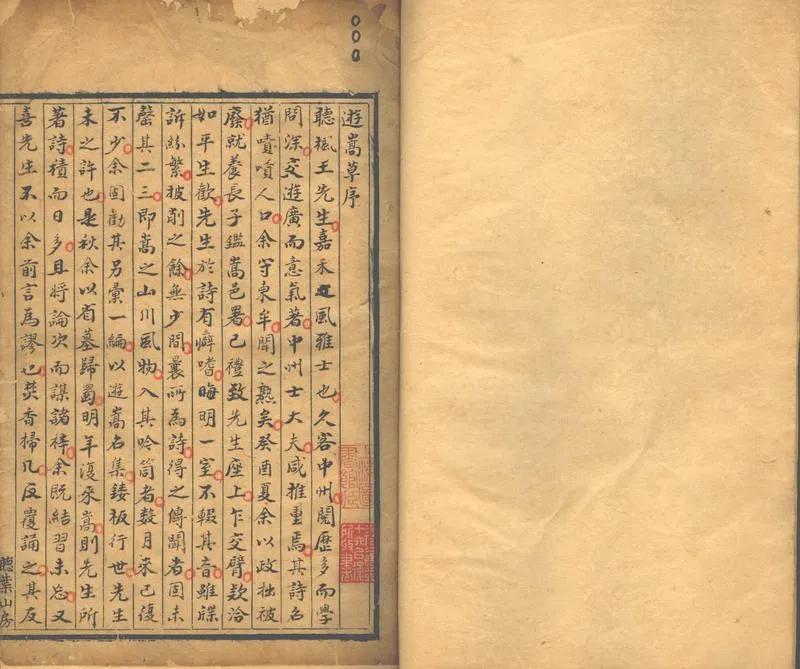 遊嵩草序
聽楓王先生嘉禾風雅士也久客中州閱歷多而學
問深交遊廣而意氣著中州士大夫咸推重焉其詩名
猶嘖嘖人口余守東牟聞之熟矣癸酉夏余以政拙被
廢就養長子鑑嵩邑署已禮致先生座上乍交臂欵洽
如平生歡先生於詩有癖嗜晦明一室不輟其音雖牒
訴紛繁披削之餘無少間曩所為詩得之傳聞者固未
罄其二三即嵩之山川風物入其吟筒者數月來已復
不少余固勸其另彙一編以遊嵩名集鋟板行世先生
未之許也是秋余以省墓歸蜀明年復來嵩則先生所
著詩積而日多且將論次而謀諸梓余既結習未忘又
喜先生不以余前言為謬也焚香掃几反覆誦之其反
聽葉山房
000